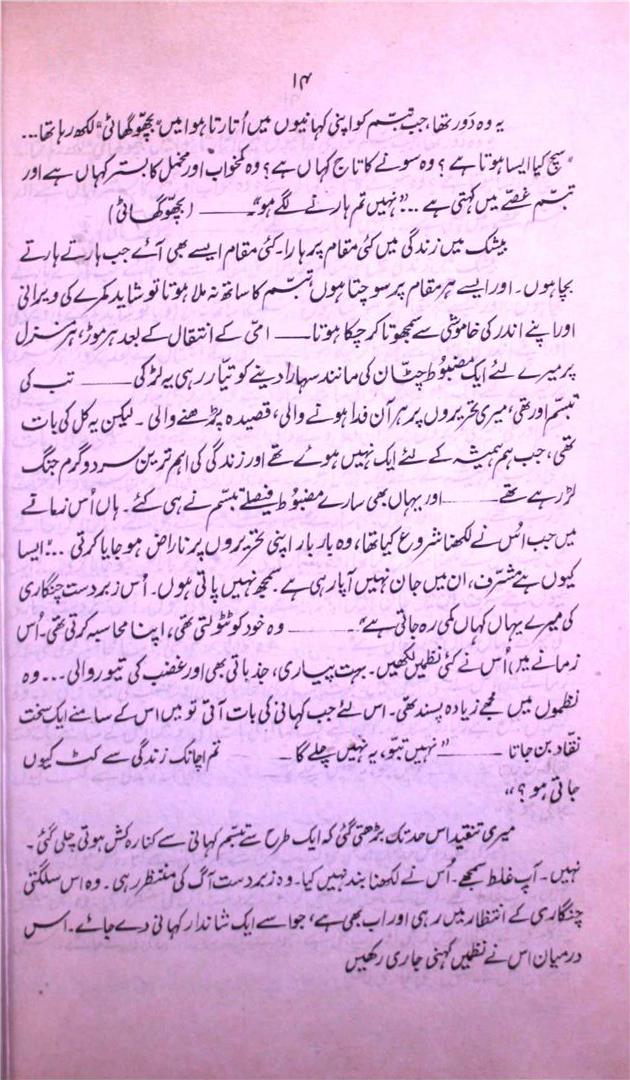 ۱۴
یہ وہ دَور تھا، جب تبسّم کو اپنی کہانیوں میں اُتارتا ہوا میں ”بچھّو گھاٹی“ لکھ رہا تھا...
”سچ کیا ایسا ہوتا ہے؟ وہ سونے کا تاج کہاں ہے؟ وہ کمخواب اور مخمل کا بستر کہاں ہے اور
تبسّم غصّے میں کہتی ہے...”نہیں تم ہارنے لگے ہو“۔—— (بچھّو گھاٹی)
بیشک میں زندگی میں کئی مقام پر ہارا۔ کئی مقام ایسے بھی آئے جب ہارتے ہارتے
بچا ہوں۔ اور ایسے ہر مقام پر سوچتا ہوں، تبسّم کا ساتھ نہ ملا ہوتا تو شاید کمرے کی ویرانی
اور اپنے اندر کی خاموشی سے سمجھوتا کر چکا ہوتا—— امّی کے انتقال کے بعد ہر موڑ، ہر منزل
پر میرے لئے ایک مضبُوط چٹّان کی مانند سہارا دینے کو تیّار رہی یہ لڑکی—— تب کی
تبسّم اور تھی، میری تحریروں پر ہر آن فدا ہونے والی، قصیدہ پڑھنے والی۔ لیکن یہ کل کی بات
تھی، جب ہم ہمیشہ کے لئے ایک نہیں ہوئے تھے اور زندگی کی اہم ترین سرد و گرم جنگ
لڑ رہے تھے—— اور یہاں بھی سارے مضبُوط فیصلے تبسّم نے ہی کئے۔ ہاں اُس زمانے
میں جب اُس نے لکھنا شروع کیا تھا، وہ بار بار اپنی تحریروں پر ناراض ہو جایا کرتی...”ایسا
کیوں ہے مشرّف، ان میں جان نہیں آ پا رہی ہے۔ سمجھ نہیں پاتی ہوں۔ اُس زبردست چنگاری
کی میرے یہاں کہاں کمی رہ جاتی ہے“۔—— وہ خود کو ٹٹولتی تھی، اپنا محاسبہ کرتی تھی۔ اُس
زمانے میں اُس نے کئی نظمیں لکھیں۔ بہت پیاری، جذباتی بھی اور غضب کی تیور والی... وہ
نظموں میں مجھے زیادہ پسند تھی۔ اس لئے جب کہانی کی بات آتی تو میں اس کے سامنے ایک سخت
نقّاد بن جاتا——”نہیں تبّو، یہ نہیں چلے گا۔—— تم اچانک زندگی سے کٹ کیوں
جاتی ہو؟“
میری تنقید اس حد تک بڑھتی گئی کہ ایک طرح سے تبسّم کہانی سے کنارہ کش ہوتی چلی گئی۔
نہیں۔ آپ غلط سمجھے۔ اُس نے لکھنا بند نہیں کیا۔ وہ زبردست آگ کی منتظر رہی۔ وہ اس سلگتی
چنگاری کے انتظار میں رہی اور اب بھی ہے، جو اسے ایک شاندار کہانی دے جائے۔ اس
درمیان اس نے نظمیں کہنی جاری رکھیں